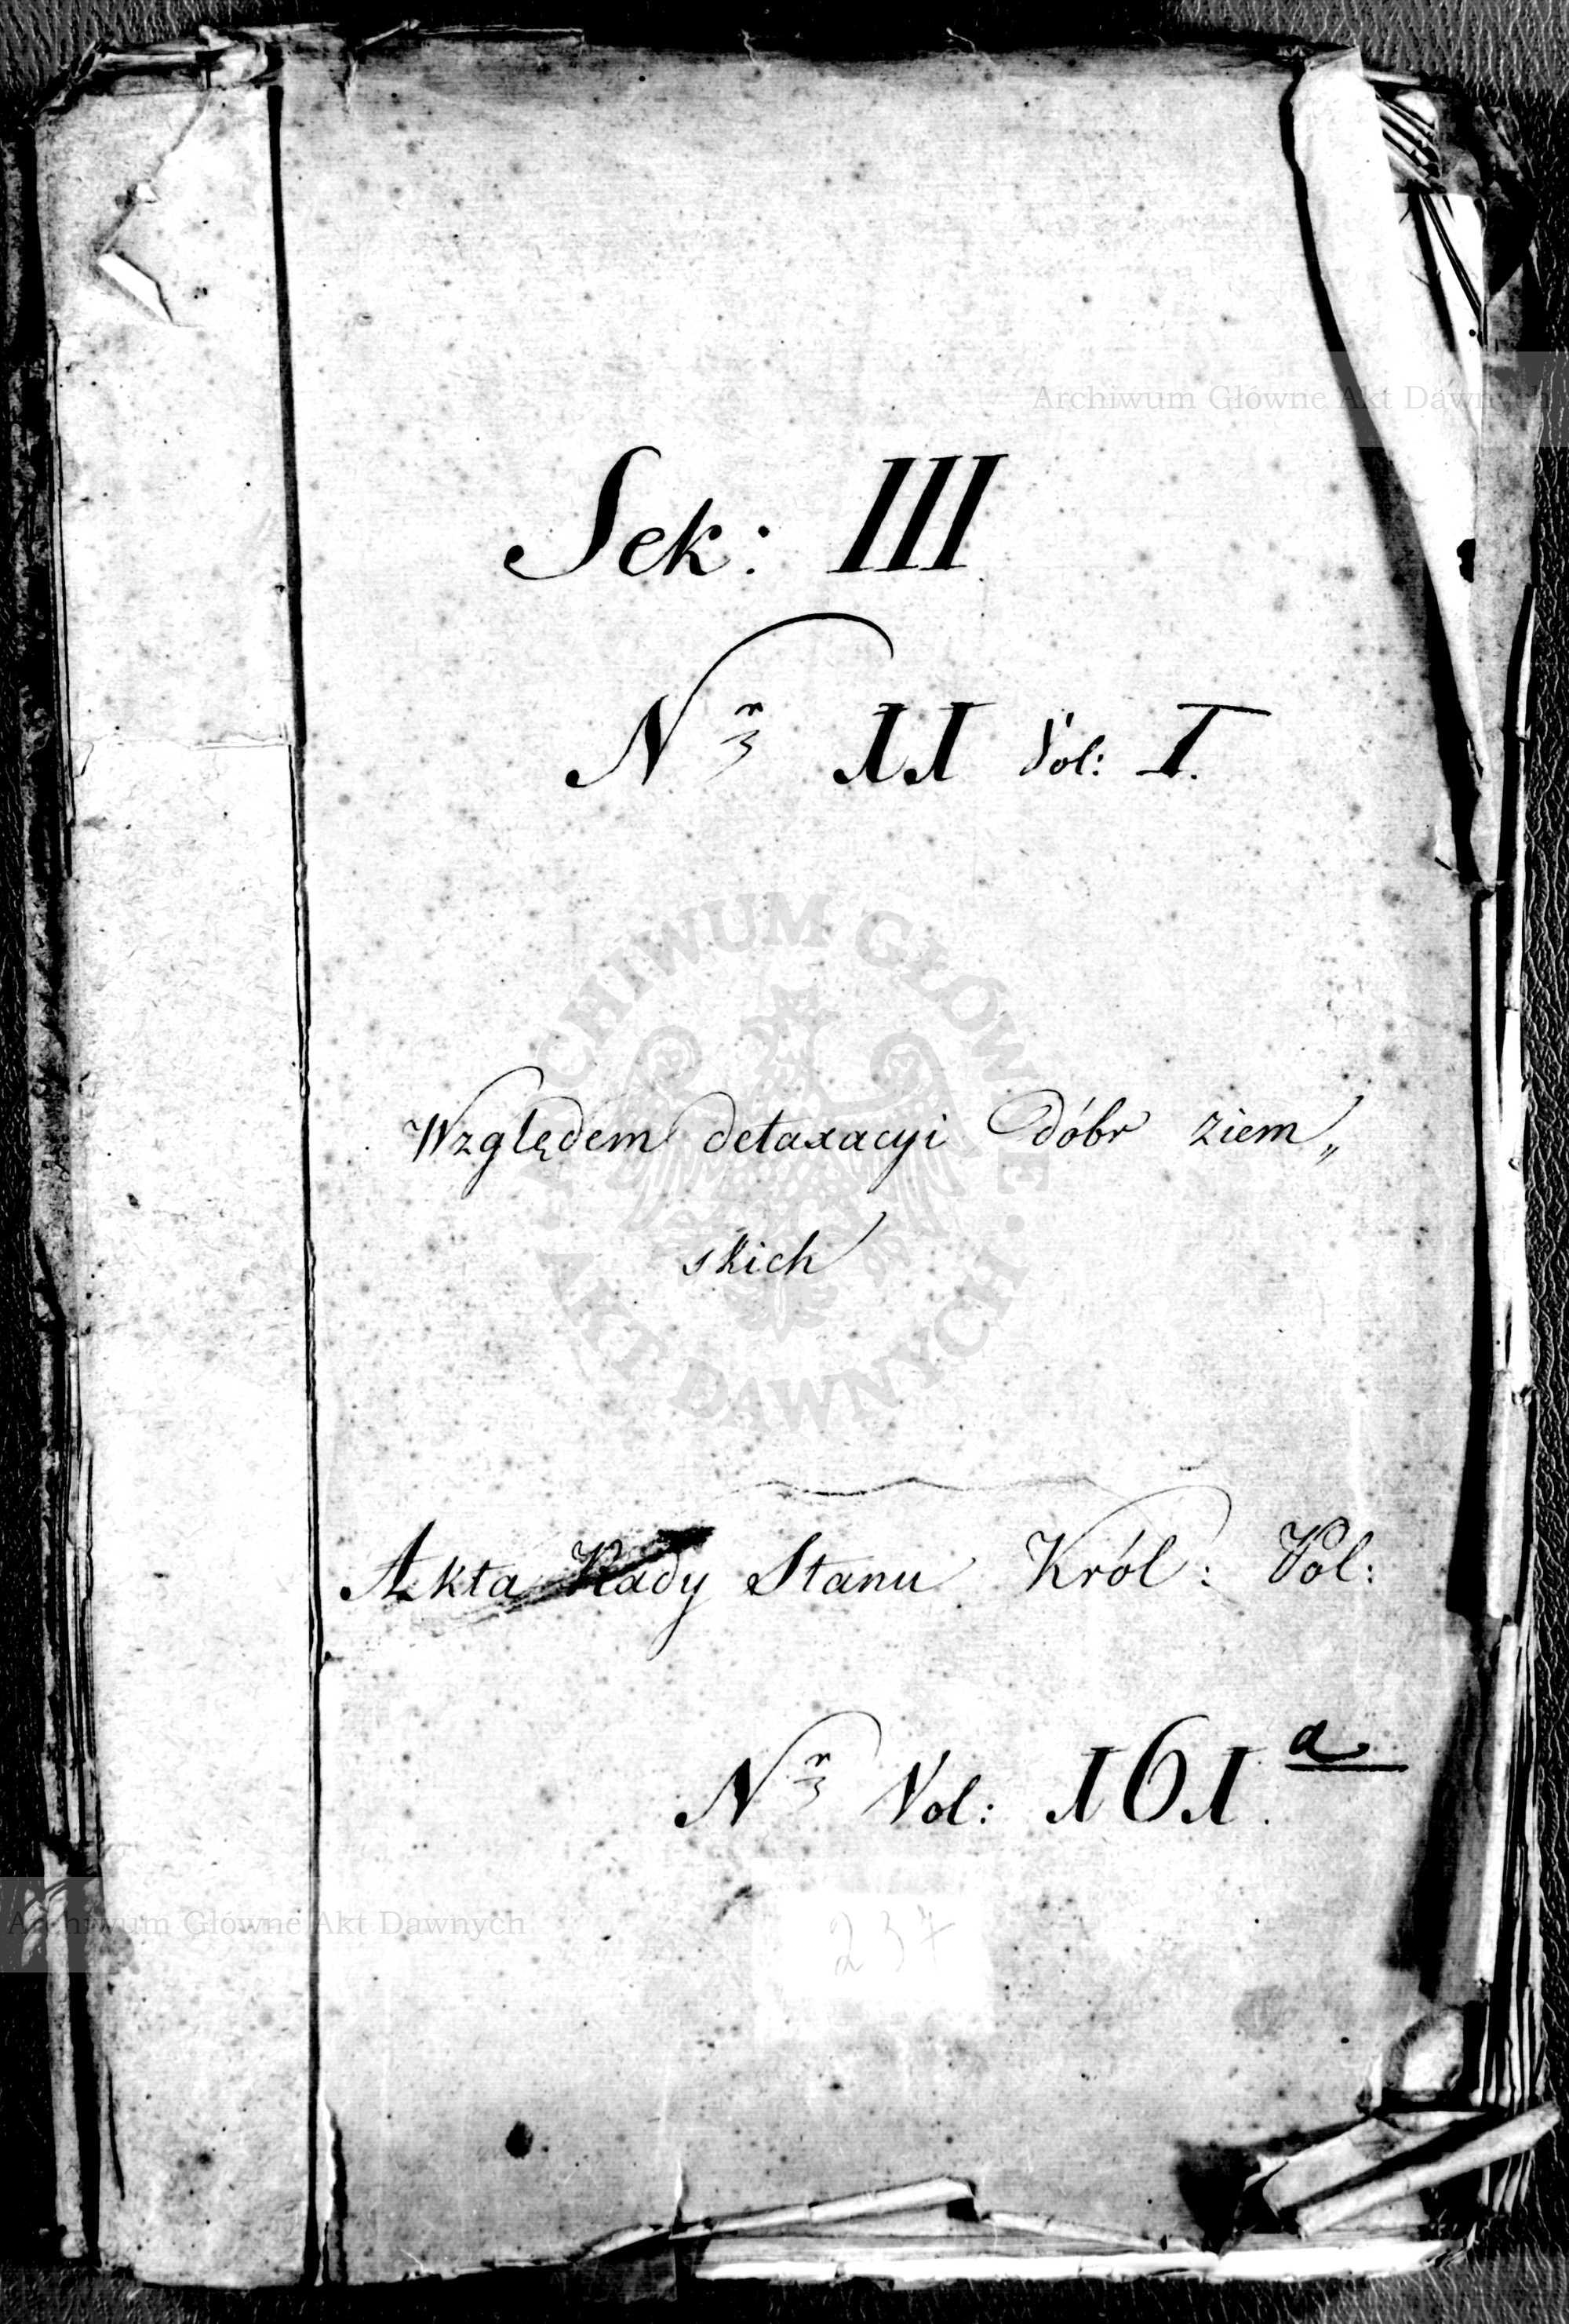 Archiwum Główne Akt Dawnych
Sek: III
Nr 11 Vol: I.
ARCHIWUM GŁÓWNE
Względem detaxacyi dóbr ziem„
skich
· AKT DAWNYCH ·
Akta Rady Stanu Król: Pol:
Nr Vol: 161.a
Archiwum Główne Akt Dawnych
237